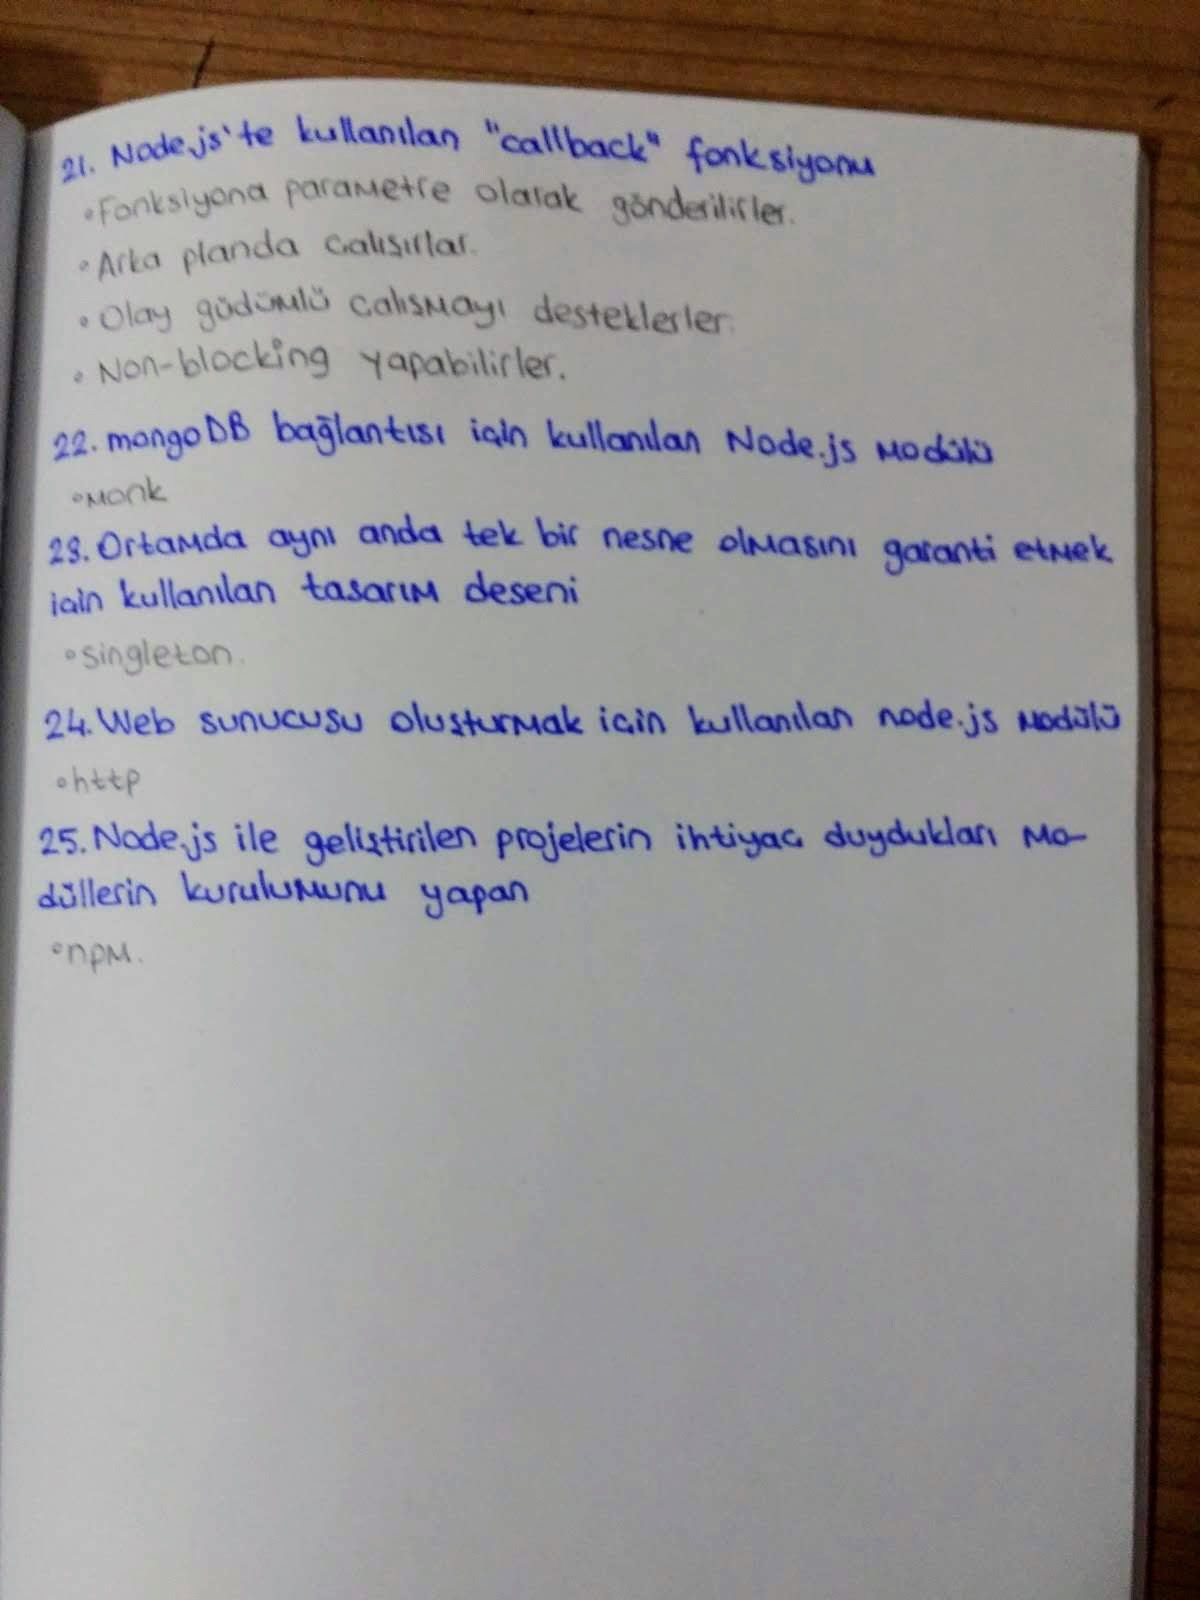 21. Node.js'te kullanılan "callback" fonksiyonu
• Fonksiyona parametre olarak gönderilirler.
• Arka planda çalışırlar.
• Olay güdümlü çalışmayı desteklerler.
• Non-blocking yapabilirler.
22. mongoDB bağlantısı için kullanılan Node.js modülü
• monk
23. Ortamda aynı anda tek bir nesne olmasını garanti etmek
için kullanılan tasarım deseni
• singleton.
24. Web sunucusu oluşturmak için kullanılan node.js modülü
• http
25. Node.js ile geliştirilen projelerin ihtiyaç duydukları mo-
düllerin kurulumunu yapan
• npm.